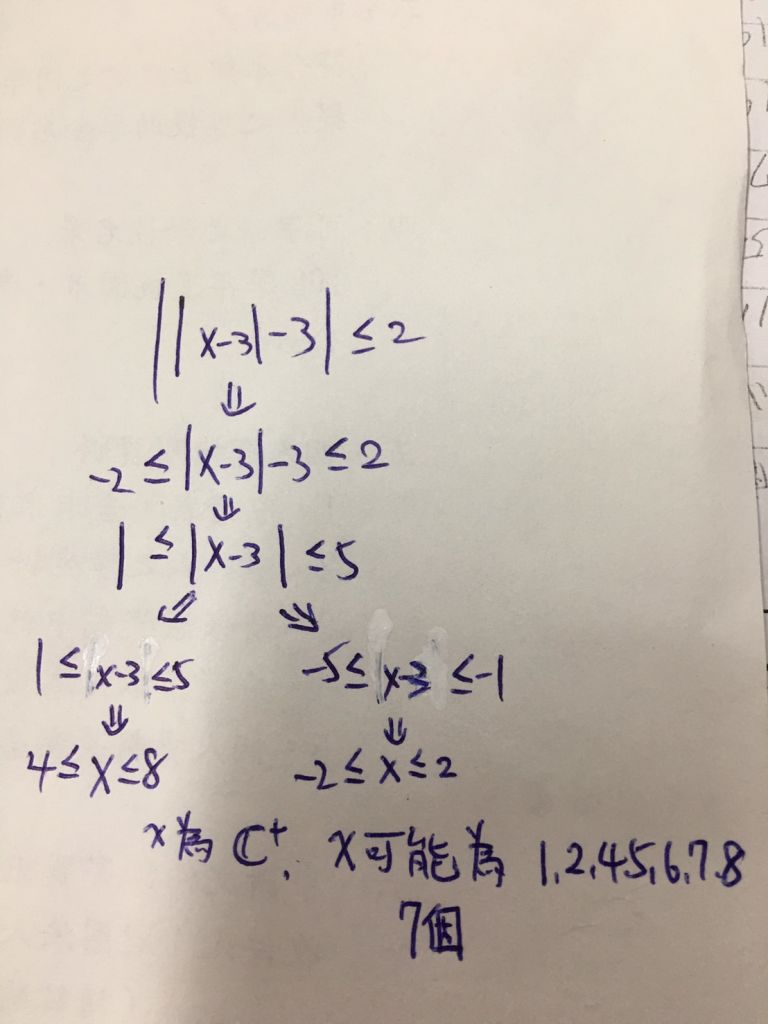 ||x-3|-3| ≤ 2
⇓
-2 ≤ |x-3|-3 ≤ 2
⇓
1 ≤ |x-3| ≤ 5
⇙ ⇘
1 ≤ x-3 ≤ 5 -5 ≤ x-3 ≤ -1
⇓ ⇓
4 ≤ x ≤ 8 -2 ≤ x ≤ 2
x為 ℂ⁺, x可能為 1,2,4,5,6,7,8
7個